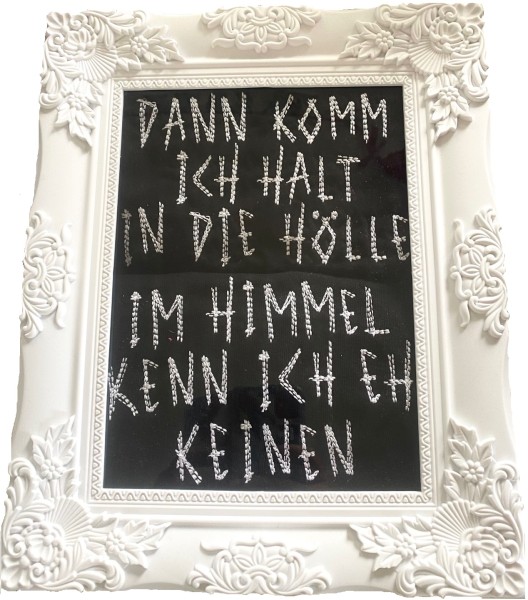 DANN KOMM
ICH HALT
IN DIE HÖLLE
IM HIMMEL
KENN ICH EH
KEINEN